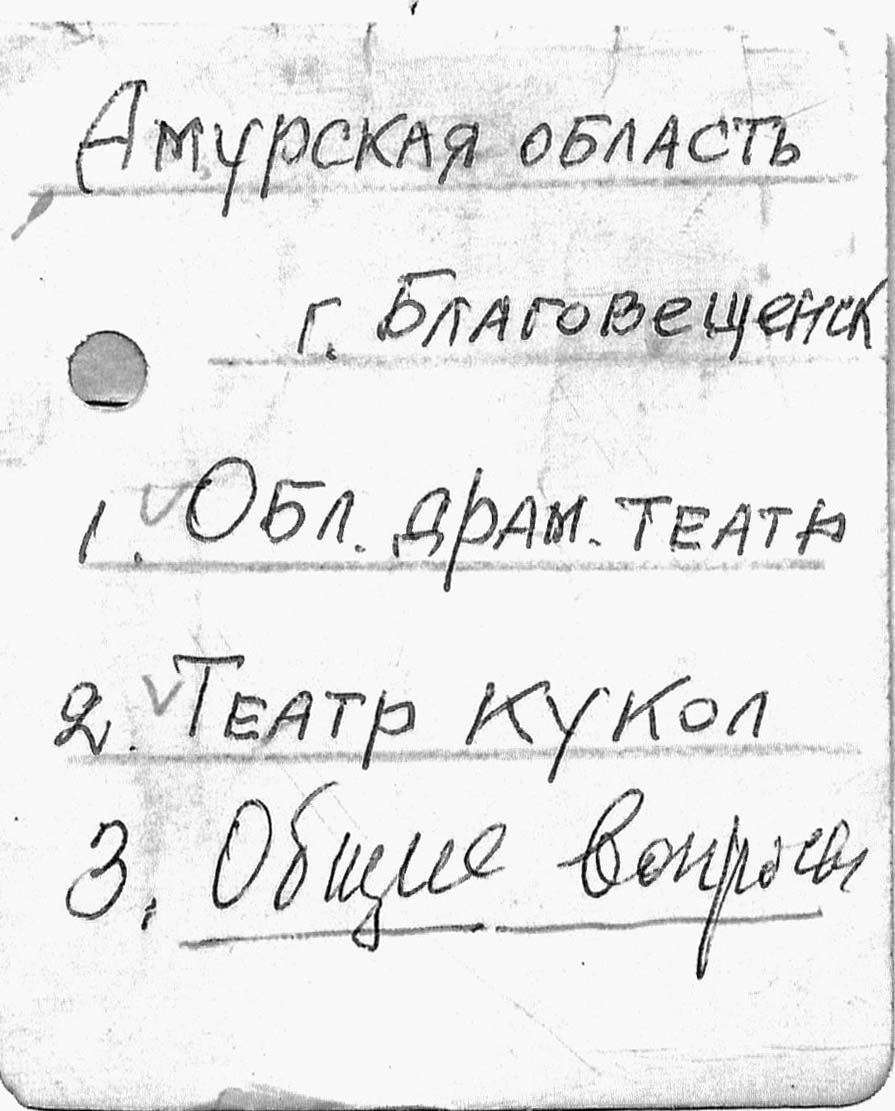 Амурская область
г. Благовещенск
1. Обл. драм. театр
2. Театр кукол
3. Общие вопросы